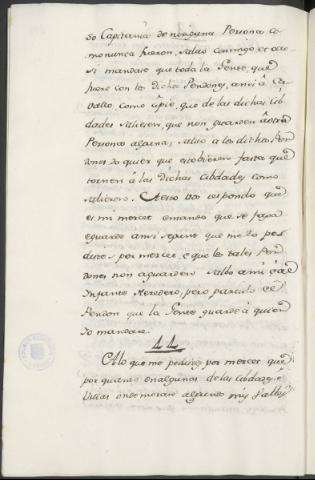 so Capitania de ninguna Persona co-
mo nunca fueron, salvo conmigo: et otro
si mandase que toda la Gente, que
fuere con los dichos Pendones, ansi á Ca-
vallo, como à pie, que de las dichas Cib-
dades salieren, que non guarden á otra
Persona alguna, salvo a los dichos Pen-
dones do quier que estobieren fasta que
tornen á las dichas Cibdades como
salieron. A esto vos respondo que
es mi merced e mando que se faga
e guarde ansi segunt que me lo pe-
distes por merced, e que los tales Pen-
dones non aguarden salvo a mi, é al
Infante Heredero, pero partido el
Pendon que la Gente guarde á quien
Yo mandare.
11
A lo que me pedistes por merced que
por quanto en algunas de las Cibdades, é
Villas onde moraba algunos mis Vasallos